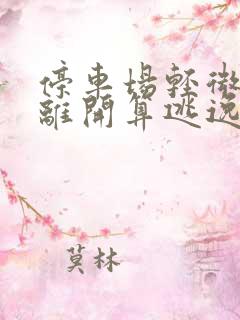 停車場輕微
離開算逃逸
莫林